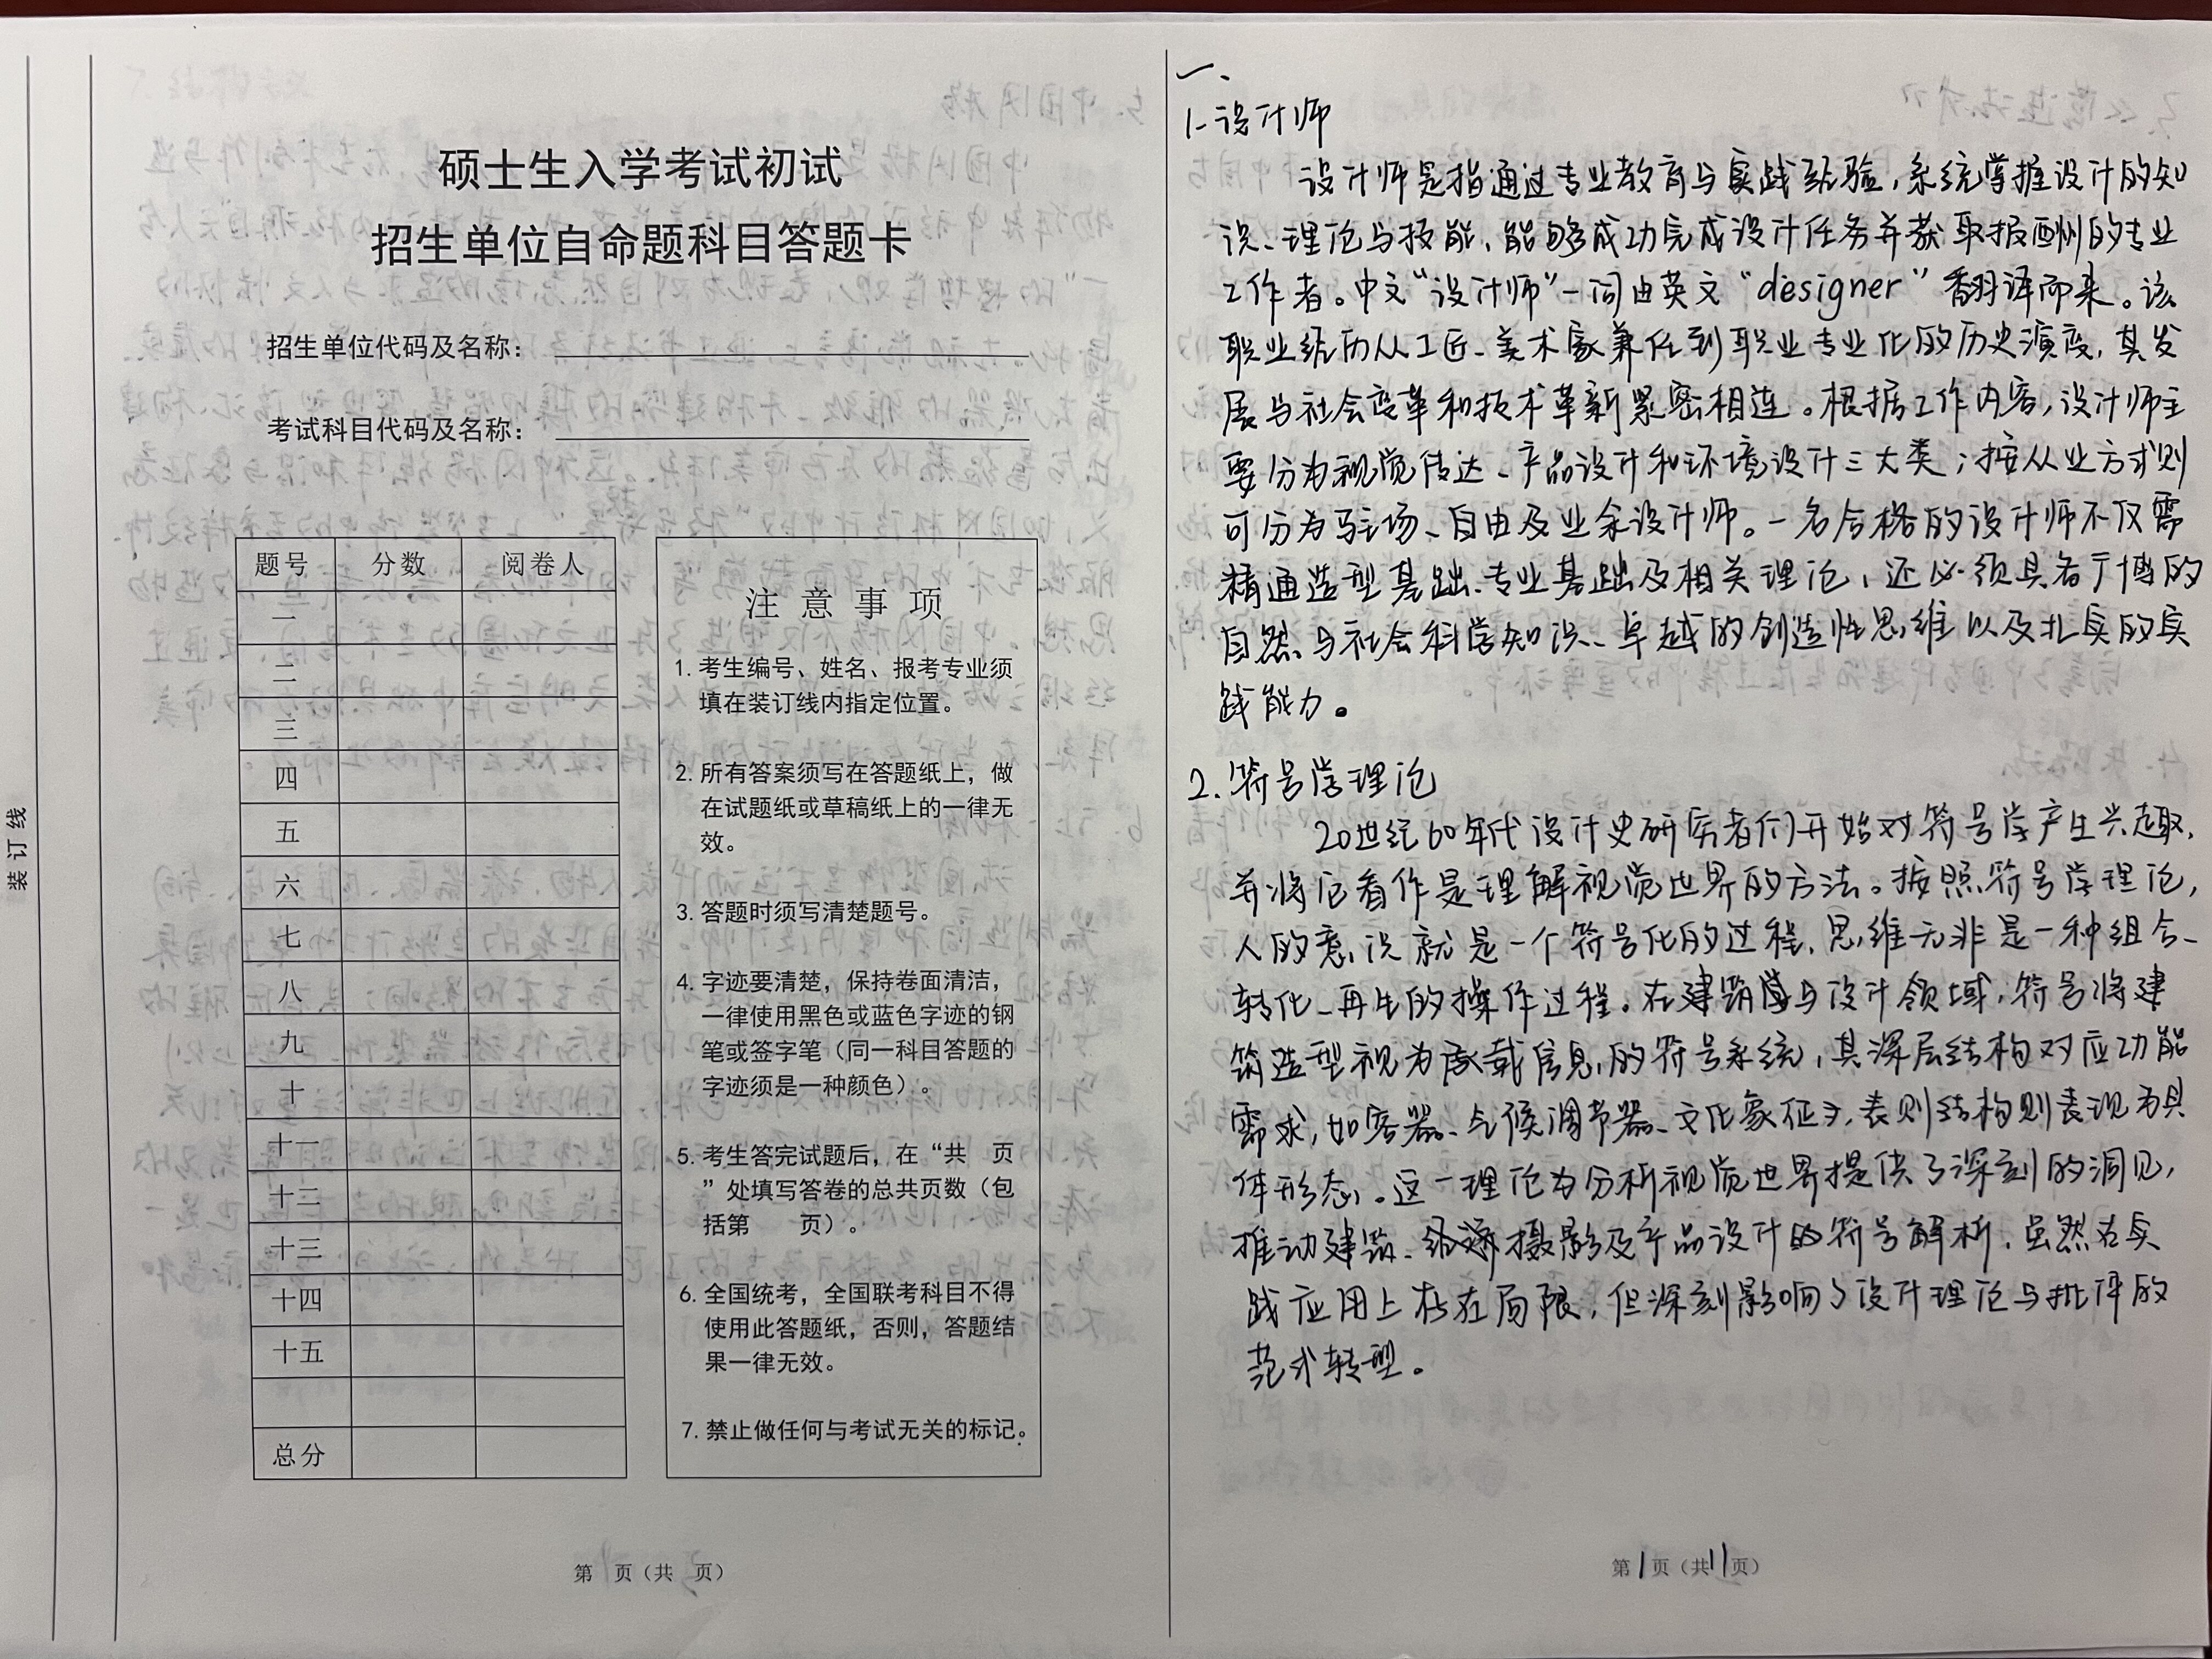 装订线
硕士生入学考试初试
招生单位自命题科目答题卡
招生单位代码及名称：
考试科目代码及名称：
题号 分数 阅卷人
一
二
三
四
五
六
七
八
九
十
十一
十二
十三
十四
十五
总分
注意事项
1. 考生编号、姓名、报考专业须
填在装订线内指定位置。
2. 所有答案须写在答题纸上，做
在试题纸或草稿纸上的一律无
效。
3. 答题时须写清楚题号。
4. 字迹要清楚，保持卷面清洁，
一律使用黑色或蓝色字迹的钢
笔或签字笔（同一科目答题的
字迹须是一种颜色）。
5. 考生答完试题后，在“共 页
”处填写答卷的总共页数（包
括第 页）。
6. 全国统考，全国联考科目不得
使用此答题纸，否则，答题结
果一律无效。
7. 禁止做任何与考试无关的标记。
第 页（共 页）
一、
1. 设计师
设计师是指通过专业教育与实战经验，系统掌握设计的知
识、理论与技能，能够成功完成设计任务并获取报酬的专业
工作者。中文“设计师”一词由英文“designer”翻译而来。该
职业经历从工匠、美术家兼任到职业专业化的历史演变，其发
展与社会变革和技术革新紧密相连。根据工作内容，设计师主
要分为视觉传达、产品设计和环境设计三大类；按从业方式则
可分为驻场、自由及业余设计师。一名合格的设计师不仅需
精通造型基础、专业基础及相关理论，还必须具备广博的
自然与社会科学知识、卓越的创造性思维以及扎实的实
践能力。
2. 符号学理论
20世纪60年代设计史研究者们开始对符号学产生兴趣，
并将它看作是理解视觉世界的方法。按照符号学理论，
人的意识就是一个符号化的过程，思维无非是一种组合、
转化、再生的操作过程。在建筑学与设计领域，符号将建
筑造型视为承载信息的符号系统，其深层结构对应功能
需求，如容器、气候调节器、文化象征等，表则结构则表现为具
体形态。这一理论为分析视觉世界提供了深刻的洞见，
推动建筑、摄影及产品设计的符号解析，虽然在实
践应用上存在局限，但深刻影响了设计理论与批评的
范式转型。
第1页（共11页）